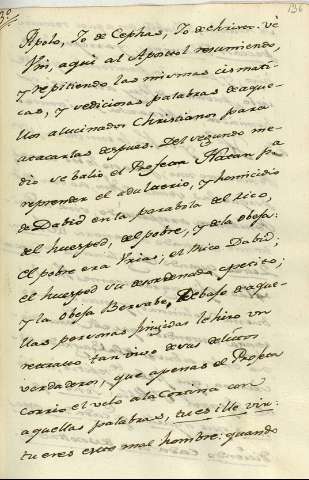 3º
136
Apolo, Io de Cephas, Io de christo. vè
Vm, aqui al Apostol resumiendo,
y repitiendo las mismas cismati-
cas, y vediciosas palabras de aque-
llos alucinados Christianos para
atacarlas despues. Del segundo me-
dio se balio el Profeta Natan pª
reprender el adulterio, y homicidio
de Dabid en la parabola del rico,
del huesped, del pobre, y de la obeja:
el pobre era Vrias; el Rico Dabid;
el huesped su desordenado apetito;
y la Obeja Bersabe. Debajo de aque-
llas personas finjidas le hizo un
retrato tan vivo de sus delitos
verdaderos, que apenas el Profeta
corrio el velo a la Cortina con
aquellas palabras, tu es ille vir:
tu eres este mal hombre: quando